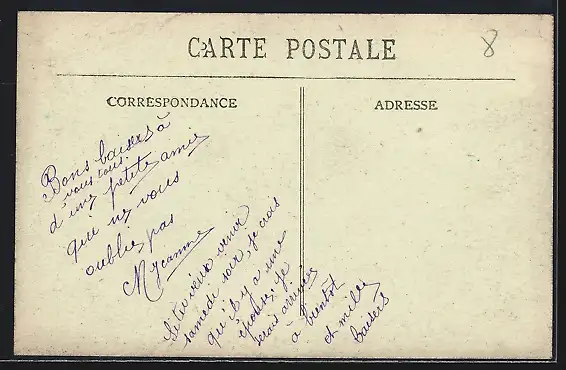 CARTE POSTALE
8
CORRESPONDANCE
ADRESSE
Bons baisers à
vous tous.
d'une petite amie
qui ne vous
oublie pas
Si tu veux venir
samedi soir, je crois
qu'il y a une
je
serais arrivée
à bientôt
et mille
baisers